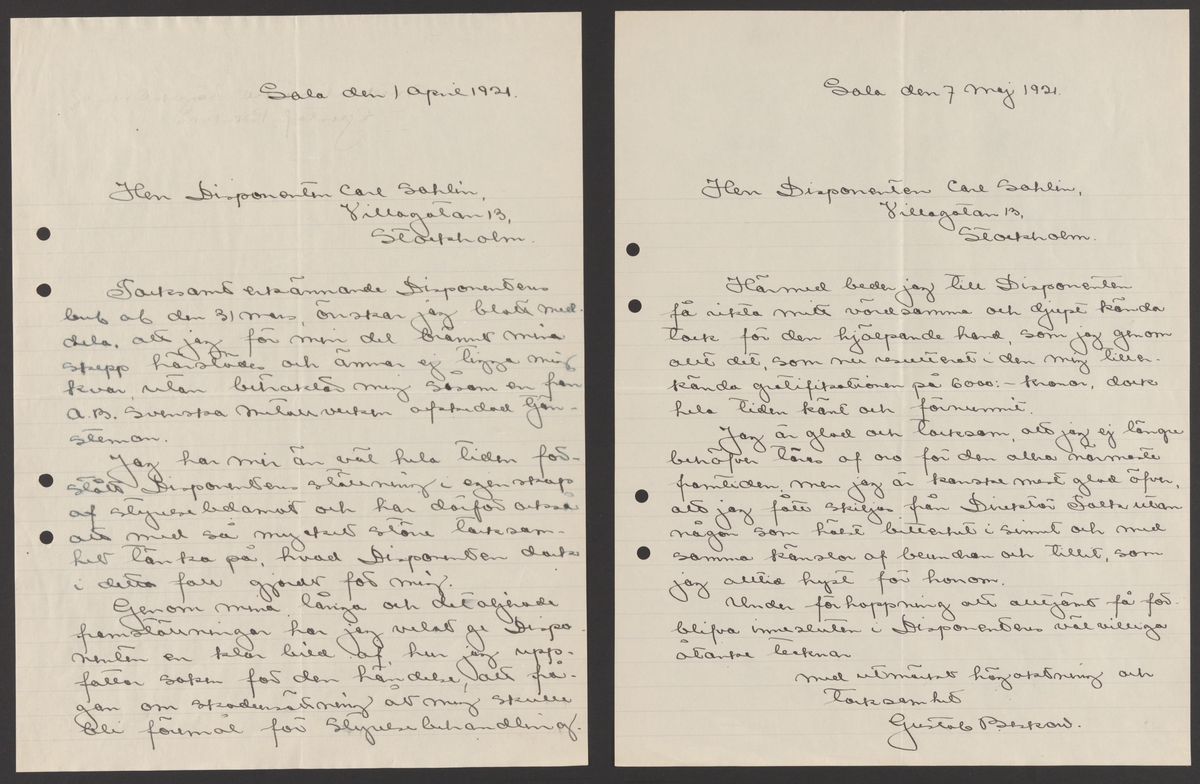 Sala den 1 April 1921.
Herr Disponenten Carl Sahlin,
Villagatan 13,
Stockholm.
Tacksamt erkännande Disponentens
bref af den 31 mars, önskar jag blott med-
dela, att jag för min del bränt mina
skepp härstädes och ämnar ej ligga mig
kvar, utan betraktar mig såsom en från
A.B. Svenska Metallverken afskedad tjän-
steman.
Jag har mer än väl hela tiden för-
stått Disponentens ställning i egenskap
af styrelseledamot och har därför också
att med så mycket större tacksam-
het tänka på, hvad Disponenten dock
i detta fall gjort för mig.
Genom mina långa och detaljerade
framställningar har jag velat ge Dispo-
nenten en klar bild af, hur jag upp-
fattar saken för den händelse, att frå-
gan om skadeersättning åt mig skulle
bli föremål för styrelsebehandling.
Sala den 7 Maj 1921.
Herr Disponenten Carl Sahlin,
Villagatan 13,
Stockholm.
Härmed beder jag till Disponenten
få rikta mitt vördsamma och djupt kända
tack för den hjälpande hand, som jag genom
allt det, som nu resulterat i den mig tiller-
kända gratifikationen på 6000:- kronor, dock
hela tiden känt och förnummit.
Jag är glad och tacksam, att jag ej längre
behöfver täras af oro för den allra närmaste
framtiden, men jag är kanske mest glad öfver,
att jag fått skiljas från Direktör Falk utan
någon som hälst bitterhet i sinnet och med
samma känslor af beundran och tillit, som
jag alltid hyst för honom.
Under förhoppning att alltjämt få för-
blifva innesluten i Disponentens välvilliga
åtanke tecknar
med utmärkt högaktning och
tacksamhet
Gustaf Beskow.